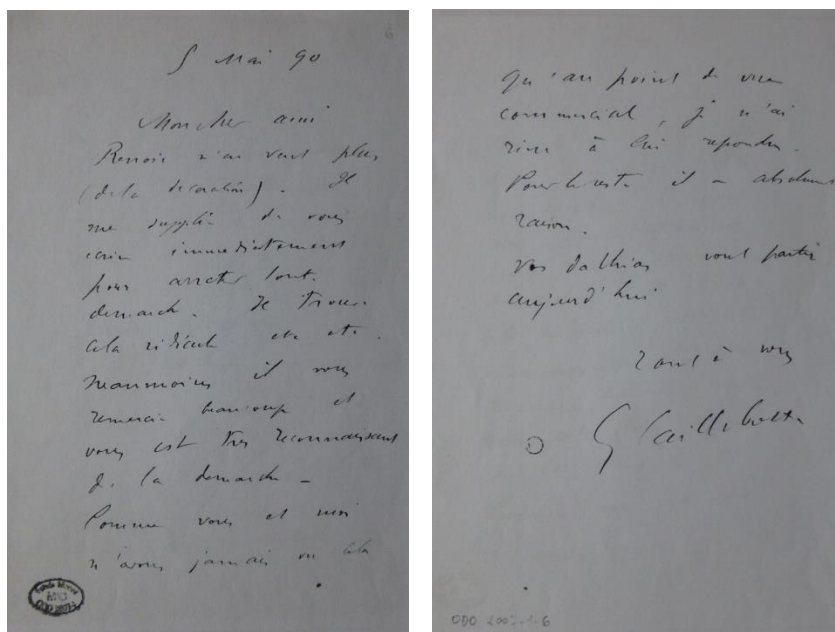 6
5 Mai 90
Mon cher ami
Renoir n'en veut plus
(de la décoration). Il
me supplie de vous
écrire immédiatement
pour arrêter toute
démarche. Il trouve
cela ridicule etc etc.
Néanmoins il vous
remercie beaucoup et
vous est très reconnaissant
de la démarche –
Comme vous et moi
n'avons jamais vu cela
qu'au point de vue
commercial, je n'ai
rien à lui répondre.
Pour le reste il a absolument
raison.
Vos dahlias vont partir
aujourd'hui
Tout à vous
G Caillebotte
ODO 2007-1-6